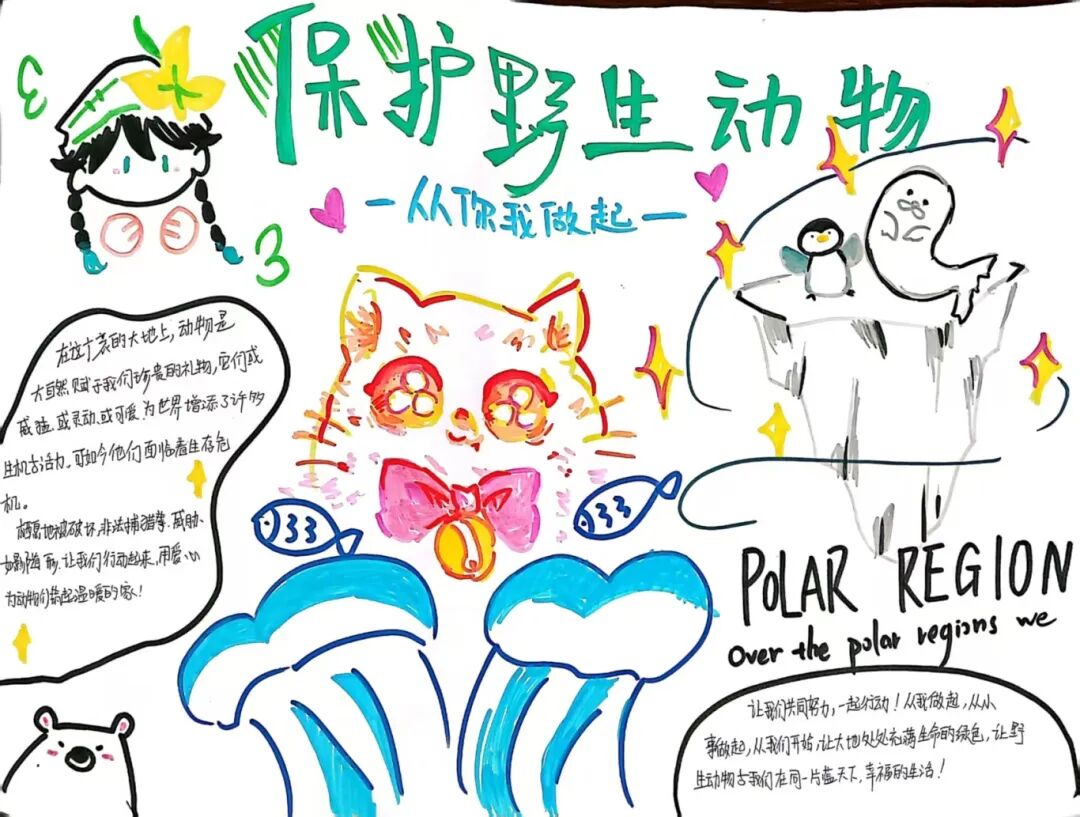 保护野生动物
一从你我做起一
在这广袤的大地上，动物是
大自然赋于我们珍贵的礼物，它们或
威猛、或灵动、或可爱，为世界增添了许多
生机与活力，可如今他们面临着生存危
机。
栖息地被破坏，非法捕猎等威胁
如影随形，让我们行动起来，用爱心
为动物们筑起温暖的家！
33
33
POLAR REGION
Over the polar regions we
让我们共同努力，一起行动！从我做起，从小
事做起，从我们开始，让大地处处充满生命的绿色，让野
生动物与我们在同一片蓝天下，幸福的生活！